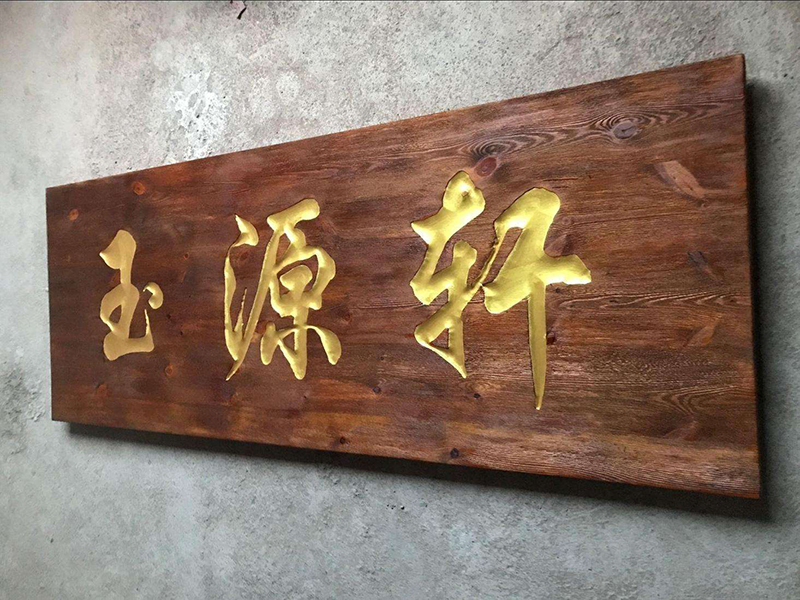 玉源轩